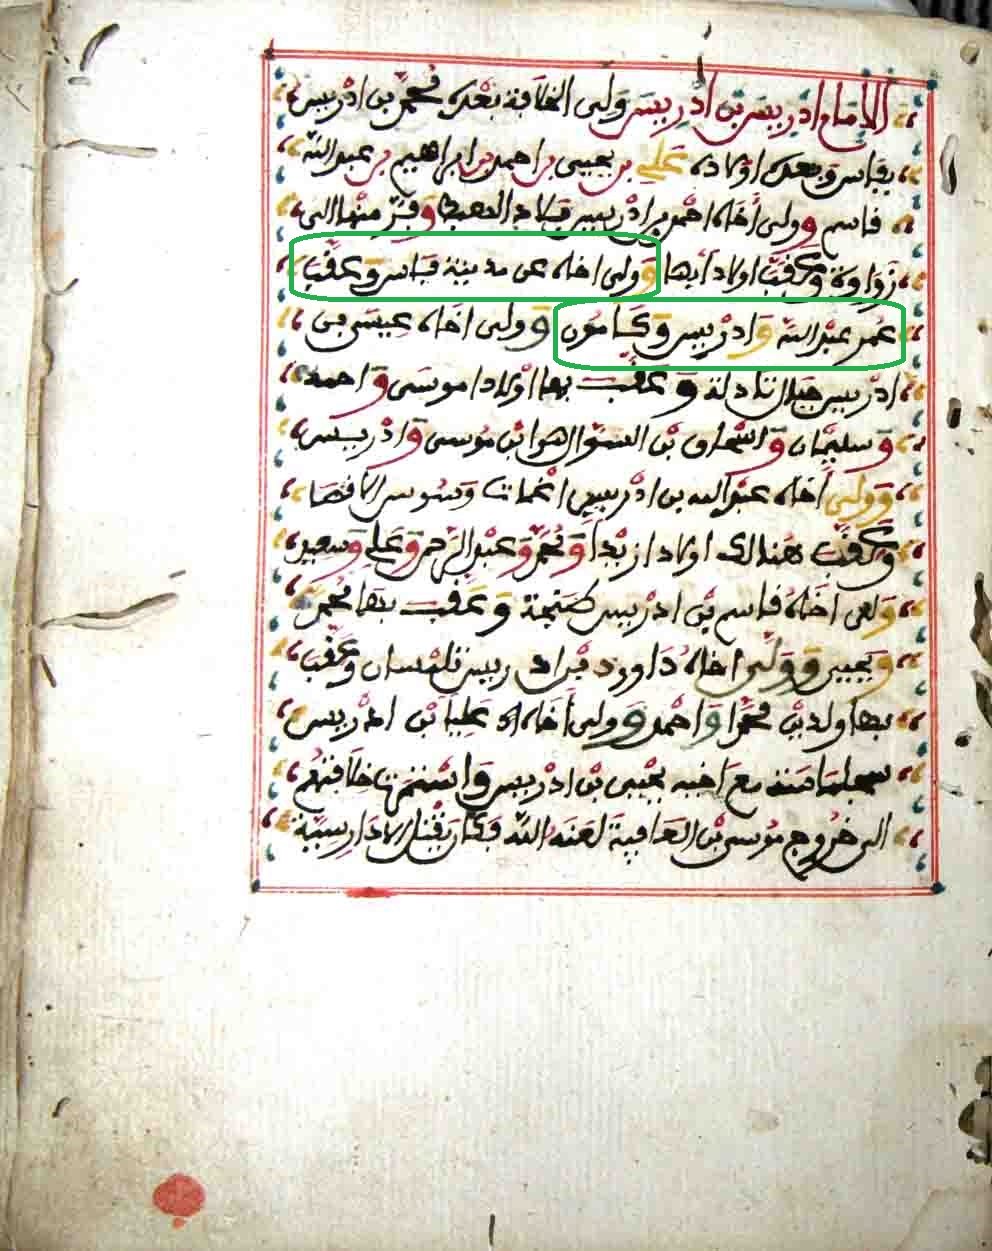 الامام ادريس بن ادريس وولى الخلافة بعده محمد بن ادريس
بفاس وبعده اولاده علي بن يحيى بن احمد بن ابراهيم بن عبد الله
فاسم وولى أخاه احمد بن ادريس بلاد وفر منها الى
زواوة وعقب اولاد أبها وولى اخاه عمر مدينة فاس وعقب
عمر عبد الله وادريس وكامون وولى اخاه عيسى بن
ادريس جبال تادلة وعقب بها اولادا موسى واحمد
وسليمان واسحاق بن هو ابن موسى وادريس
وولى أخاه عبد الله بن ادريس اغمات وسوس الافصا
وعقب هنالك اولاد ازيدا ومحمد وعبد الرحمن وعلي وسعيد
ولى اخاه قاسم بن ادريس طنجة وعقب بها محمد
ويحيى وولى اخاه داوود بن ادريس تلمسان وعقب
بها ولدين محمدا واحمد وولى أخاه عليا بن ادريس
سجلماصة مع اخيه يحيى بن ادريس واستمرت خلافتهم
الى خروج موسى بن العافية لعنه الله فكان يقتل الادارسية